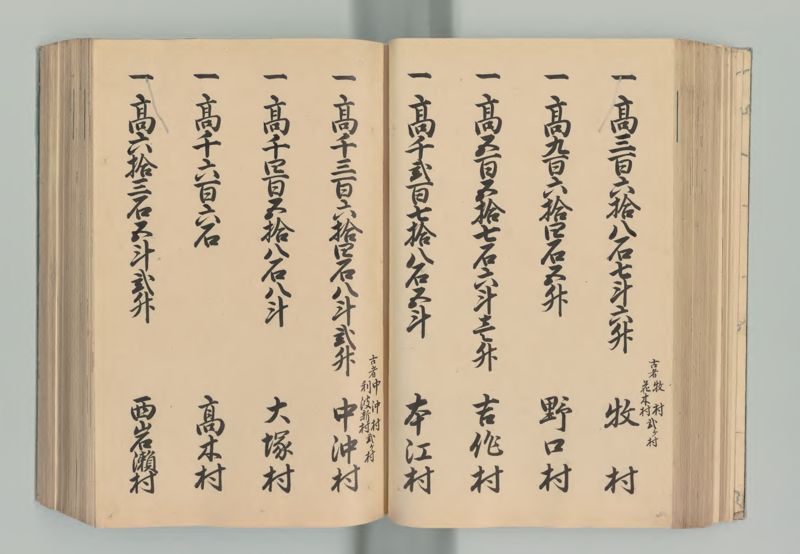 一 高三百六拾八石七斗六升 牧村
古者牧村
花木村弐ヶ村
一 高九百六拾四石五升 野口村
一 高五百五拾七石六斗壱升 吉作村
一 高千弐百七拾八石五斗 本江村
一 高千三百六拾四石八斗弐升 中沖村
古者中沖村
利波新村弐ヶ村
一 高千四百五拾八石八斗 大塚村
一 高千六百六石 高木村
一 高六拾三石五斗弐升 西岩瀬村